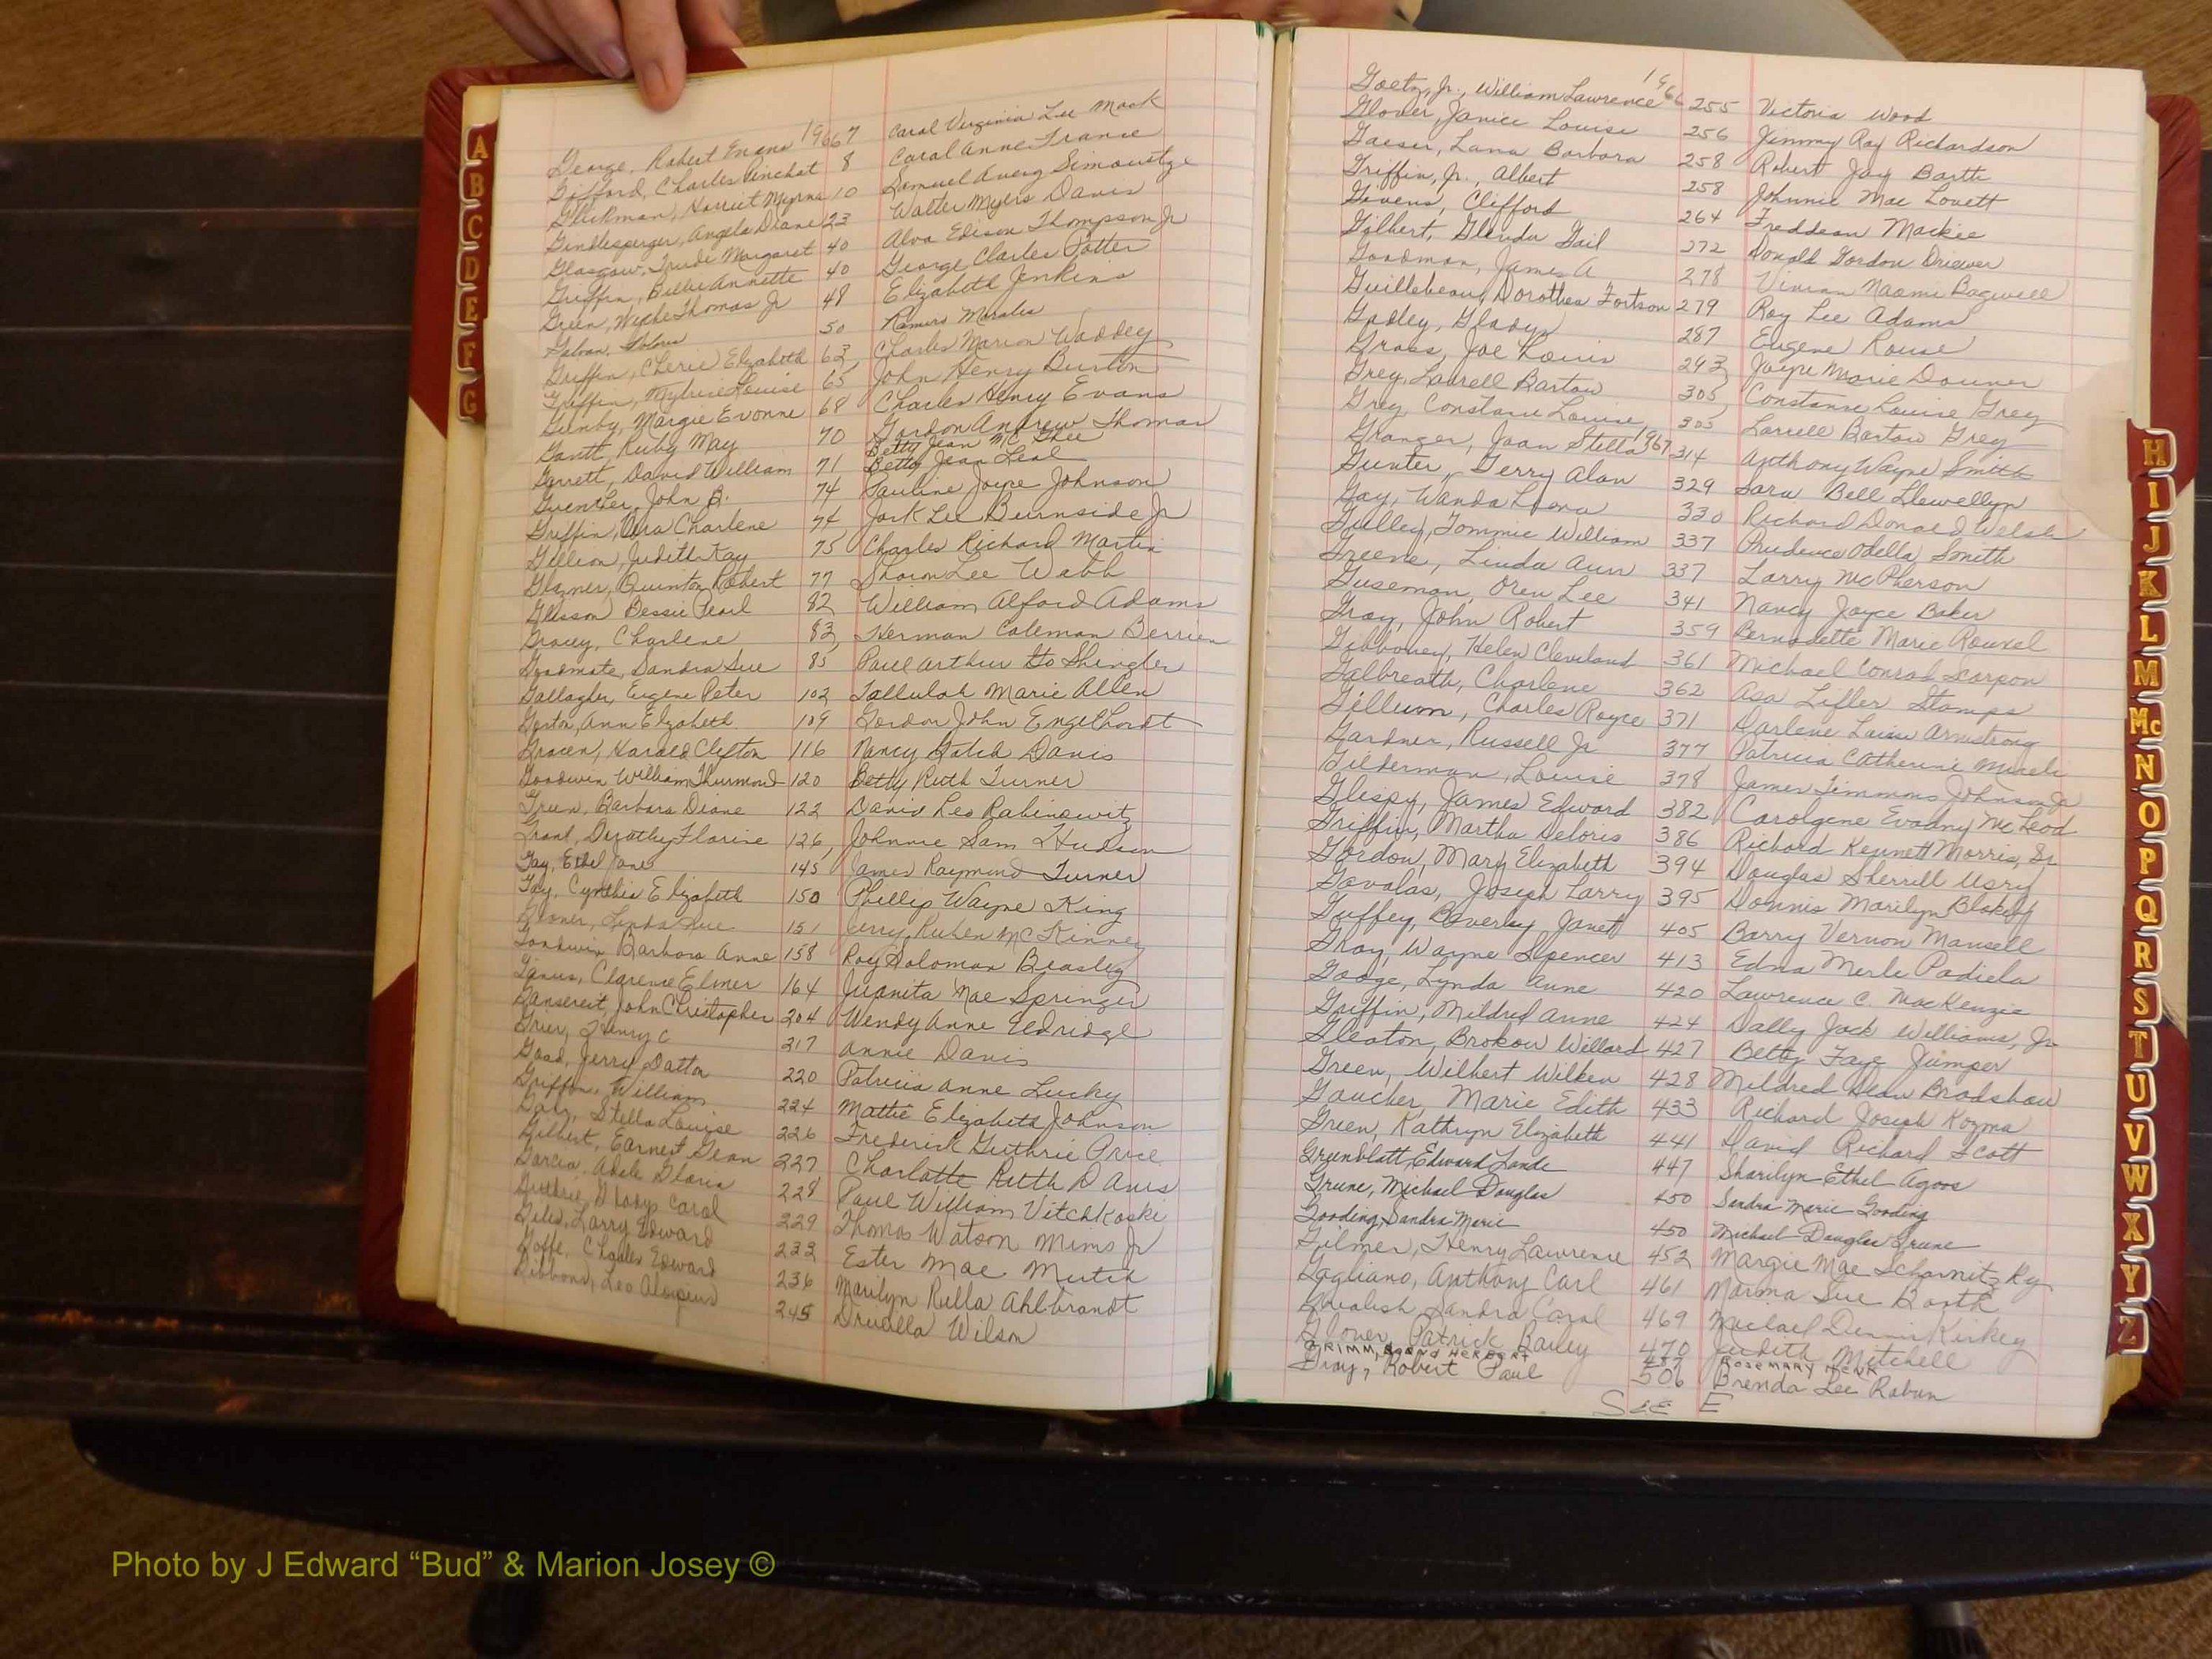 A
B
C
D
E
F
G
George, Robert Evans 1966 7 Carol Virginia Lee Mock
Gifford, Charles Pinchot 8 Carol Anne France
Glickman, Harriet Myrna 10 Samuel Averg Simowitz
Gindlesperger, Angela Diane 23 Walter Myers Davis
Glasgow, Trudi Margaret 40 Alva Edison Thompson Jr
Griffin, Billie Annette 40 George Charles Potter
Green, Wyche Thomas Jr 48 Elizabeth Jenkins
Galvan, Dolores 50 Ramiro Morales
Griffin, Cherie Elizabeth 63 Charles Marion Waddey
Griffin, Louise 65 John Henry Burton
Gunby, Margie Evonne 68 Charles Henry Evans
Gantt, Ruby May 70 Gordon Andrew Thomas
Betty Jean McGhee
Garrett, David William 71 Betty Jean Leal
Guenther, John B. 74 Pauline Joyce Johnson
Griffin, Ora Charlene 74 Jack Lee Burnside Jr
Gillion, Judith Kay 75 Charles Richard Martin
Glazner, Quinton Robert 77 Sharon Lee Webb
Glisson Bessie Pearl 82 William Alford Adams
Gracey, Charlene 83 Herman Coleman Berrien
Goodmate, Sandra Sue 85 Paul Arthur Go Shingler
Gallagher, Eugene Peter 102 Tallulah Marie Allen
Gorton, Ann Elizabeth 109 Gordon John Engelhardt
Gracen, Harold Clifton 116 Nancy Davis
Goodwin William Thurmond 120 Betty Ruth Turner
Green, Barbara Diane 122 David Leo Rabinowitz
Grant, Dorothy Florine 126 Johnnie Sam Hudson
Gay, Ethel Jane 145 James Raymond Turner
Gay, Cynthia Elizabeth 150 Phillip Wayne King
Glover, Lynda Sue 151 Jerry Ruben McKinney
Goodwin Barbara Anne 158 Roy Solomon Beasley
Ginus, Clarence Elmer 164 Juanita Mae Springer
Gansereit, John Christopher 204 Wendy Anne Eldridge
Grier, Henry C 217 Annie Davis
Goad, Jerry Dalton 220 Patricia Anne Lucky
Griffin, William 224 Mattie Elizabeth Johnson
Stella Louise 226 Frederick Guthrie Price
Gilbert, Earnest Dean 227 Charlotte Ruth Davis
Garcia, Adele Gloria 228 Paul William Vitchkoski
Guthrie, Gladys Carol 229 Thomas Watson Mims Jr
Giles, Larry Edward 233 Ester Mae Mutch
Goffe, Charles Edward 236 Marilyn Rella Ahlbrandt
Gibbons, Leo Aloysius 245 Drucilla Wilson
Goetz, Jr., William Lawrence 1966 255 Victoria Wood
Glover, Janice Louise 256 Jimmy Ray Richardson
Gaeser, Lana Barbara 258 Robert Jay Barth
Griffin, Jr., Albert 258 Johnnie Mae Lovett
Givens, Clifford 264 Freddean Mackie
Gilbert, Glenda Gail 272 Donald Gordon Driewer
Goodman, James A 278 Vivian Naomi Bagwell
Guillebeau, Dorothea Fortson 279 Roy Lee Adams
Godley, Gladys 287 Eugene Rouse
Grass, Joe Louis 293 Jayne Marie Downer
Grey, Laurell Bartow 305 Constance Louise Grey
Grey, Constance Louise 305 Laurell Bartow Grey
Granger, Joan Stella 1967 314 Anthony Wayne Smith
Gunter, Terry Alan 329 Sara Bell Llewellyn
Gay, Wanda Leona 330 Richard Donald Welsh
Gulley, Tommie William 337 Prudence Odella Smith
Greene, Linda Ann 337 Larry McPherson
Guseman, Oren Lee 341 Nancy Joyce Baker
Gray, John Robert 359 Bernadette Marie Rouxel
Gibboney, Helen Cleveland 361 Michael Conrad Scarpon
Galbreath, Charlene 362 Asa Lifler Stamps
Gillium, Charles Royce 371 Darlene Laine Armstrong
Gardner, Russell Jr 377 Patricia Catherine
Gilderman, Louise 378 James Timmons Johnson Jr
Glispy, James Edward 382 Carolgene Evaany McLeod
Griffin, Martha Deloris 386 Richard Kennett Morris, Sr
Gordon, Mary Elizabeth 394 Douglas Sherrill Usry
Gavalas, Joseph Larry 395 Donnis Marilyn Blakely
Guffey, Beverley Janet 405 Barry Vernon Mansell
Gray, Wayne Spencer 413 Edna Merle Padiela
Googe, Lynda Anne 420 Lawrence C. MacKenzie
Griffin, Mildred Anne 424 Dally Jack Williams, Jr
Gleaton, Brokow Willard 427 Betty Faye Jumper
Green, Wilbert Wilken 428 Mildred Dean Bradshaw
Goucher, Marie Edith 433 Richard Joseph Kozma
Green, Kathryn Elizabeth 441 David Richard Scott
Greenblatt, Edward Lande 447 Sharilyn Ethel Agoos
Grune, Michael Douglas 450 Sandra Marie Gooding
Gooding, Sandra Marie 450 Michael Douglas Grune
Gilmer, Henry Lawrence 452 Margie Mae Scharnitzky
Gagliano, Anthony Carl 461 Marina Sue Booth
Sandra Carol 469 Michael Dennis Kirkey
Glover, Patrick Bailey 470 Judith Mitchell
GRIMM, HERBERT 487 ROSEMARY HENK
Gray, Robert Paul 506 Brenda Lee Rabun
SEE E
H
I
J
K
L
M
Mc
N
O
P
Q
R
S
T
U
V
W
X
Y
Z
Photo by J Edward “Bud” & Marion Josey ©